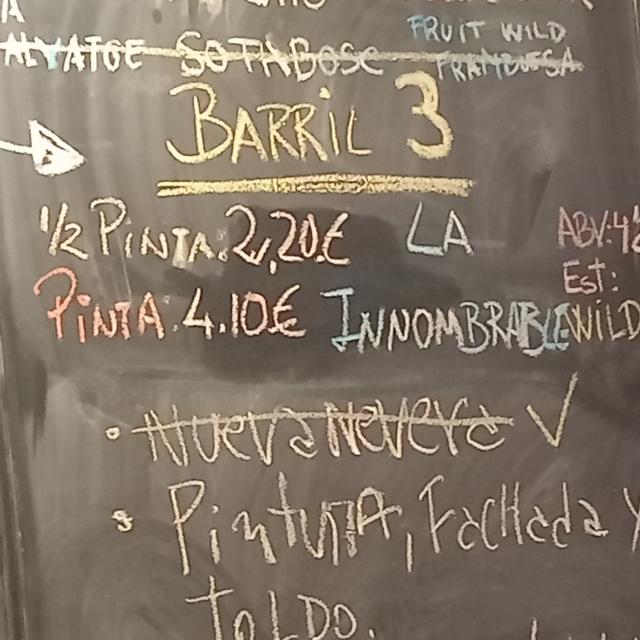 A
FRUIT WILD
SOTABOSC FRAMBUESA
BARRIL 3
1/2 PINTA. 2,20€ LA ABV:4%
PINTA. 4.10€ INNOMBRABLE Est: WILD
• Nueva Nevera ✓
• PINTURA, Fachada Y
ToLDo.